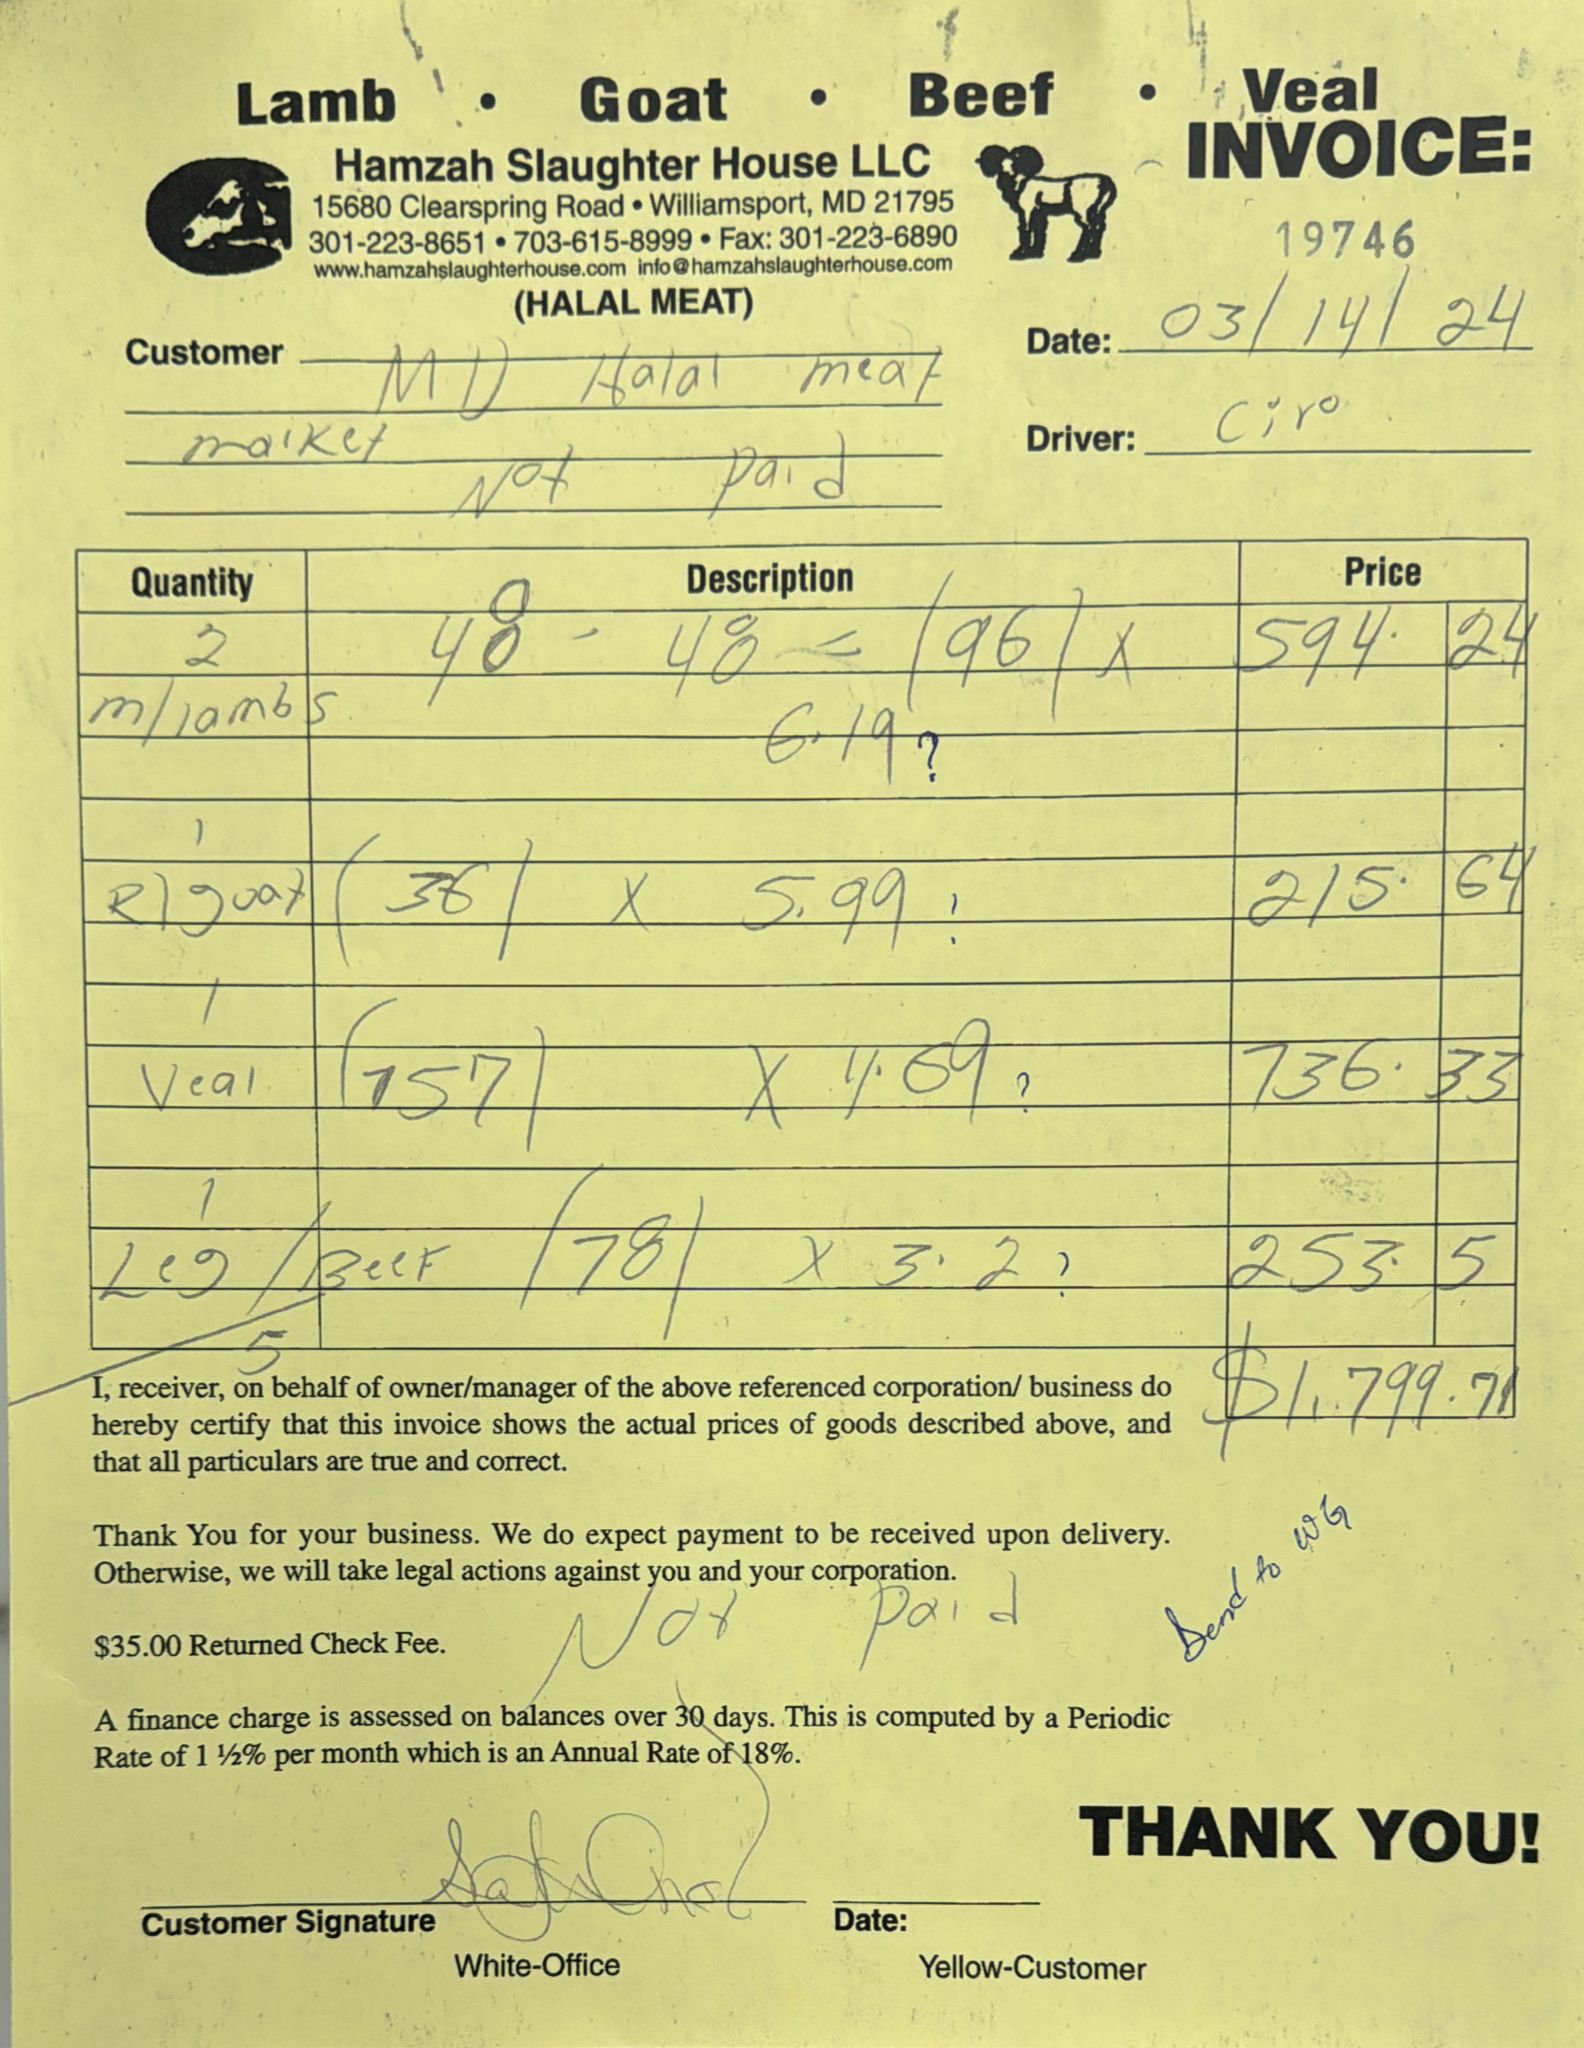 Lamb • Goat • Beef • Veal
INVOICE:
Hamzah Slaughter House LLC
15680 Clearspring Road • Williamsport, MD 21795
301-223-8651 • 703-615-8999 • Fax: 301-223-6890
www.hamzahslaughterhouse.com info@hamzahslaughterhouse.com
(HALAL MEAT)
19746
Date: 03/14/24
Customer MD Halal meat
market
Driver: Ciro
Not Paid
Quantity Description Price
2 48 - 48 = (96) x 594. 24
m/lambs 6.19?
1
R/goat (36) x 5.99 ! 215. 64
1
Veal (157) x 4.69? 736. 33
1
Leg/Beef (78) x 3.2? 253. 5
5
$1,799.71
I, receiver, on behalf of owner/manager of the above referenced corporation/ business do
hereby certify that this invoice shows the actual prices of goods described above, and
that all particulars are true and correct.
Thank You for your business. We do expect payment to be received upon delivery.
Otherwise, we will take legal actions against you and your corporation.
Not Paid
Send to WG
$35.00 Returned Check Fee.
A finance charge is assessed on balances over 30 days. This is computed by a Periodic
Rate of 1 ½% per month which is an Annual Rate of 18%.
THANK YOU!
Customer Signature Date:
White-Office Yellow-Customer